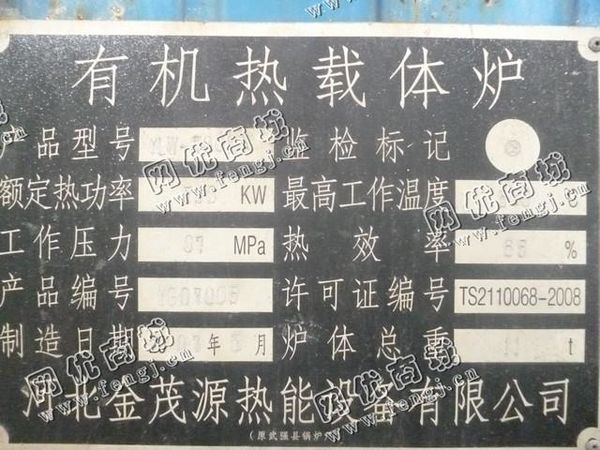 有机热载体炉
产品型号 监检标记
额定热功率 KW 最高工作温度
工作压力 MPa 热效率 %
产品编号 许可证编号 TS2110068-2008
制造日期 年 月 炉体总重 t
河北金茂源热能设备有限公司
(原武强县锅炉
网优商城
www.fengj.cn
网优商城
www.fengj.cn
网优商城
www.fengj.cn
网优商城
www.fengj.cn